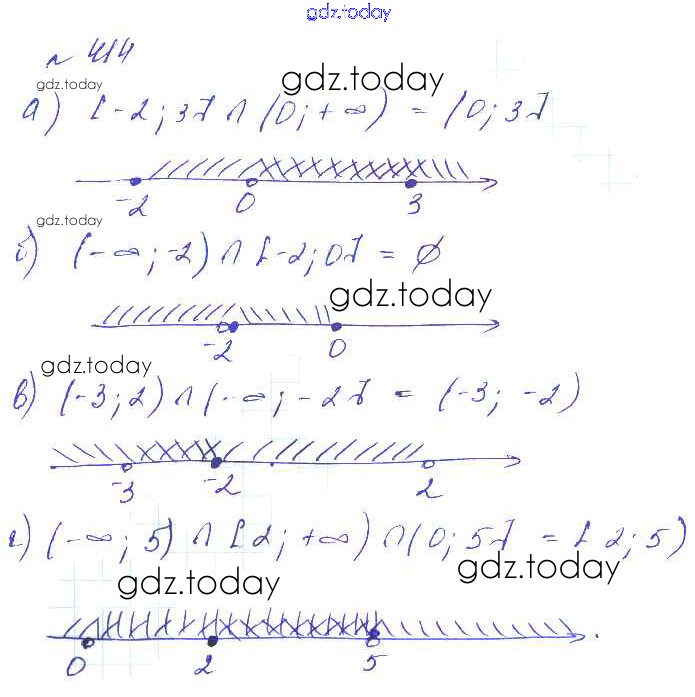 gdz.today
№ 414
gdz.today
gdz.today
а) [-2; 3] ∩ (0; +∞) = (0; 3]
-2 0 3
gdz.today
б) (-∞; -2) ∩ [-2; 0] = ∅
gdz.today
-2 0
gdz.today
в) (-3; 2) ∩ (-∞; -2] = (-3; -2)
-3 -2 2
г) (-∞; 5) ∩ [2; +∞) ∩ (0; 5] = [2; 5)
gdz.today
gdz.today
0 2 5